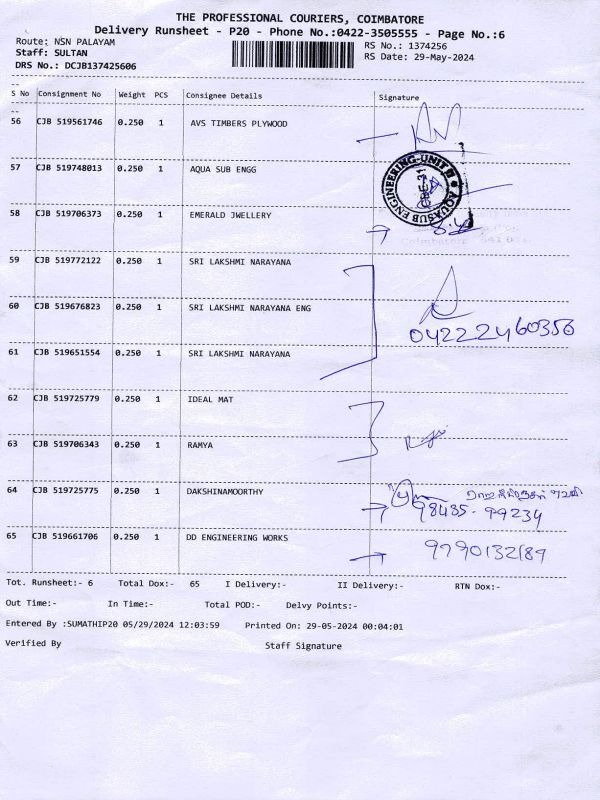 THE PROFESSIONAL COURIERS, COIMBATORE
Delivery Runsheet - P20 - Phone No.:0422-3505555 - Page No.:6
Route: NSN PALAYAM
RS No.: 1374256
Staff: SULTAN
RS Date: 29-May-2024
DRS No.: DCJB137425606
S No Consignment No Weight PCS Consignee Details Signature
56 CJB 519561746 0.250 1 AVS TIMBERS PLYWOOD
57 CJB 519748013 0.250 1 AQUA SUB ENGG
AQUASUB ENGINEERING-UNIT
CBE-31
58 CJB 519706373 0.250 1 EMERALD JWELLERY
59 CJB 519772122 0.250 1 SRI LAKSHMI NARAYANA
60 CJB 519676823 0.250 1 SRI LAKSHMI NARAYANA ENG
04222460356
61 CJB 519651554 0.250 1 SRI LAKSHMI NARAYANA
62 CJB 519725779 0.250 1 IDEAL MAT
63 CJB 519706343 0.250 1 RAMYA
64 CJB 519725775 0.250 1 DAKSHINAMOORTHY
98435-99234
65 CJB 519661706 0.250 1 DD ENGINEERING WORKS
9790132189
Tot. Runsheet:- 6 Total Dox:- 65 I Delivery:- II Delivery:- RTN Dox:-
Out Time:- In Time:- Total POD:- Delvy Points:-
Entered By :SUMATHIP20 05/29/2024 12:03:59 Printed On: 29-05-2024 00:04:01
Verified By Staff Signature